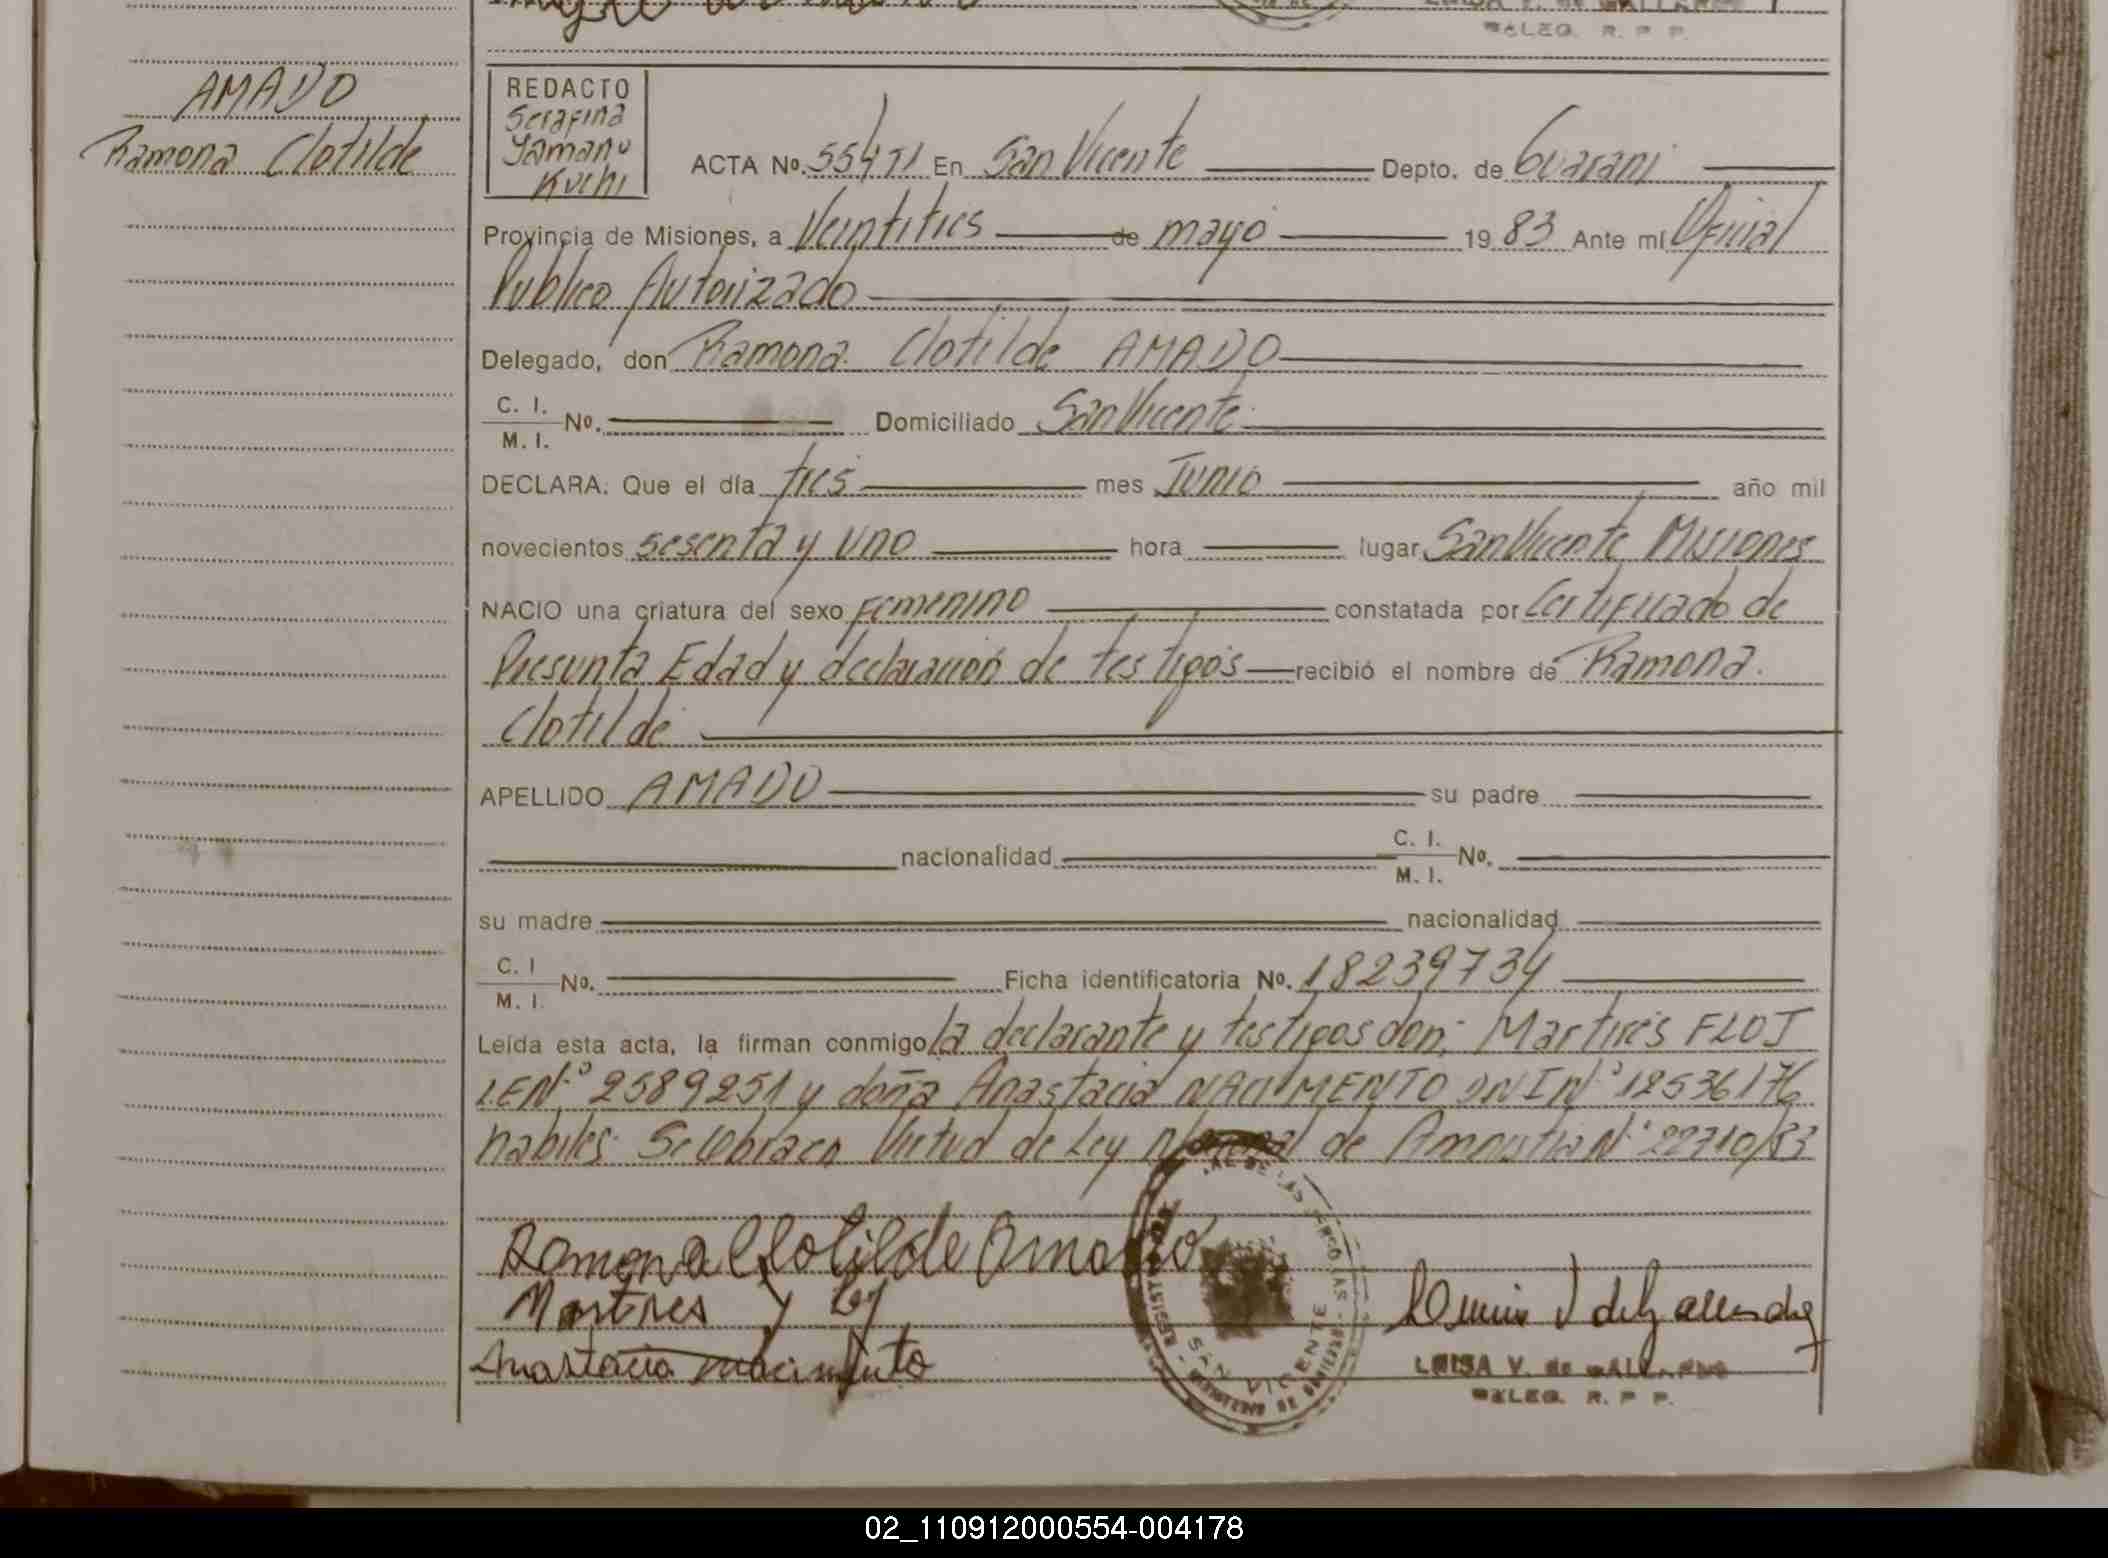 LUISA V. de GALLARDO
DELEG. R. P P.
AMADO
Ramona Clotilde
REDACTO
Serafina
Yamanu
Kuchi
ACTA No. 55451 En San Vicente Depto. de Guarani
Provincia de Misiones, a Veintitres de mayo 1983 Ante mí Oficial
Publico Autorizado
Delegado, don Ramona Clotilde AMADO
C. I.
M. I. No. Domiciliado San Vicente
DECLARA: Que el día tres mes Junio año mil
novecientos sesenta y uno hora lugar San Vicente Misiones
NACIO una criatura del sexo Femenino constatada por Certificado de
Presunta Edad y declaración de testigos recibió el nombre de Ramona
Clotilde
APELLIDO AMADO su padre
nacionalidad C. I.
M. I. No.
su madre nacionalidad
C. I
M. I. No. Ficha identificatoria No. 18239734
Leída esta acta, la firman conmigo la declarante y testigos don: Martires FLOJ
L.E.N.º 2589251 y doña Anastacia NACIMENTO DNI Nº 12536176
habiles. Se labra en Virtud de Ley Nacional de Amnistia Nº 22710/83
Ramona Clotilde Amado
Martires
Anastacia nacimento
SAN VICENTE
LUISA V. de GALLARDO
DELEG. R. P P.
02_110912000554-004178